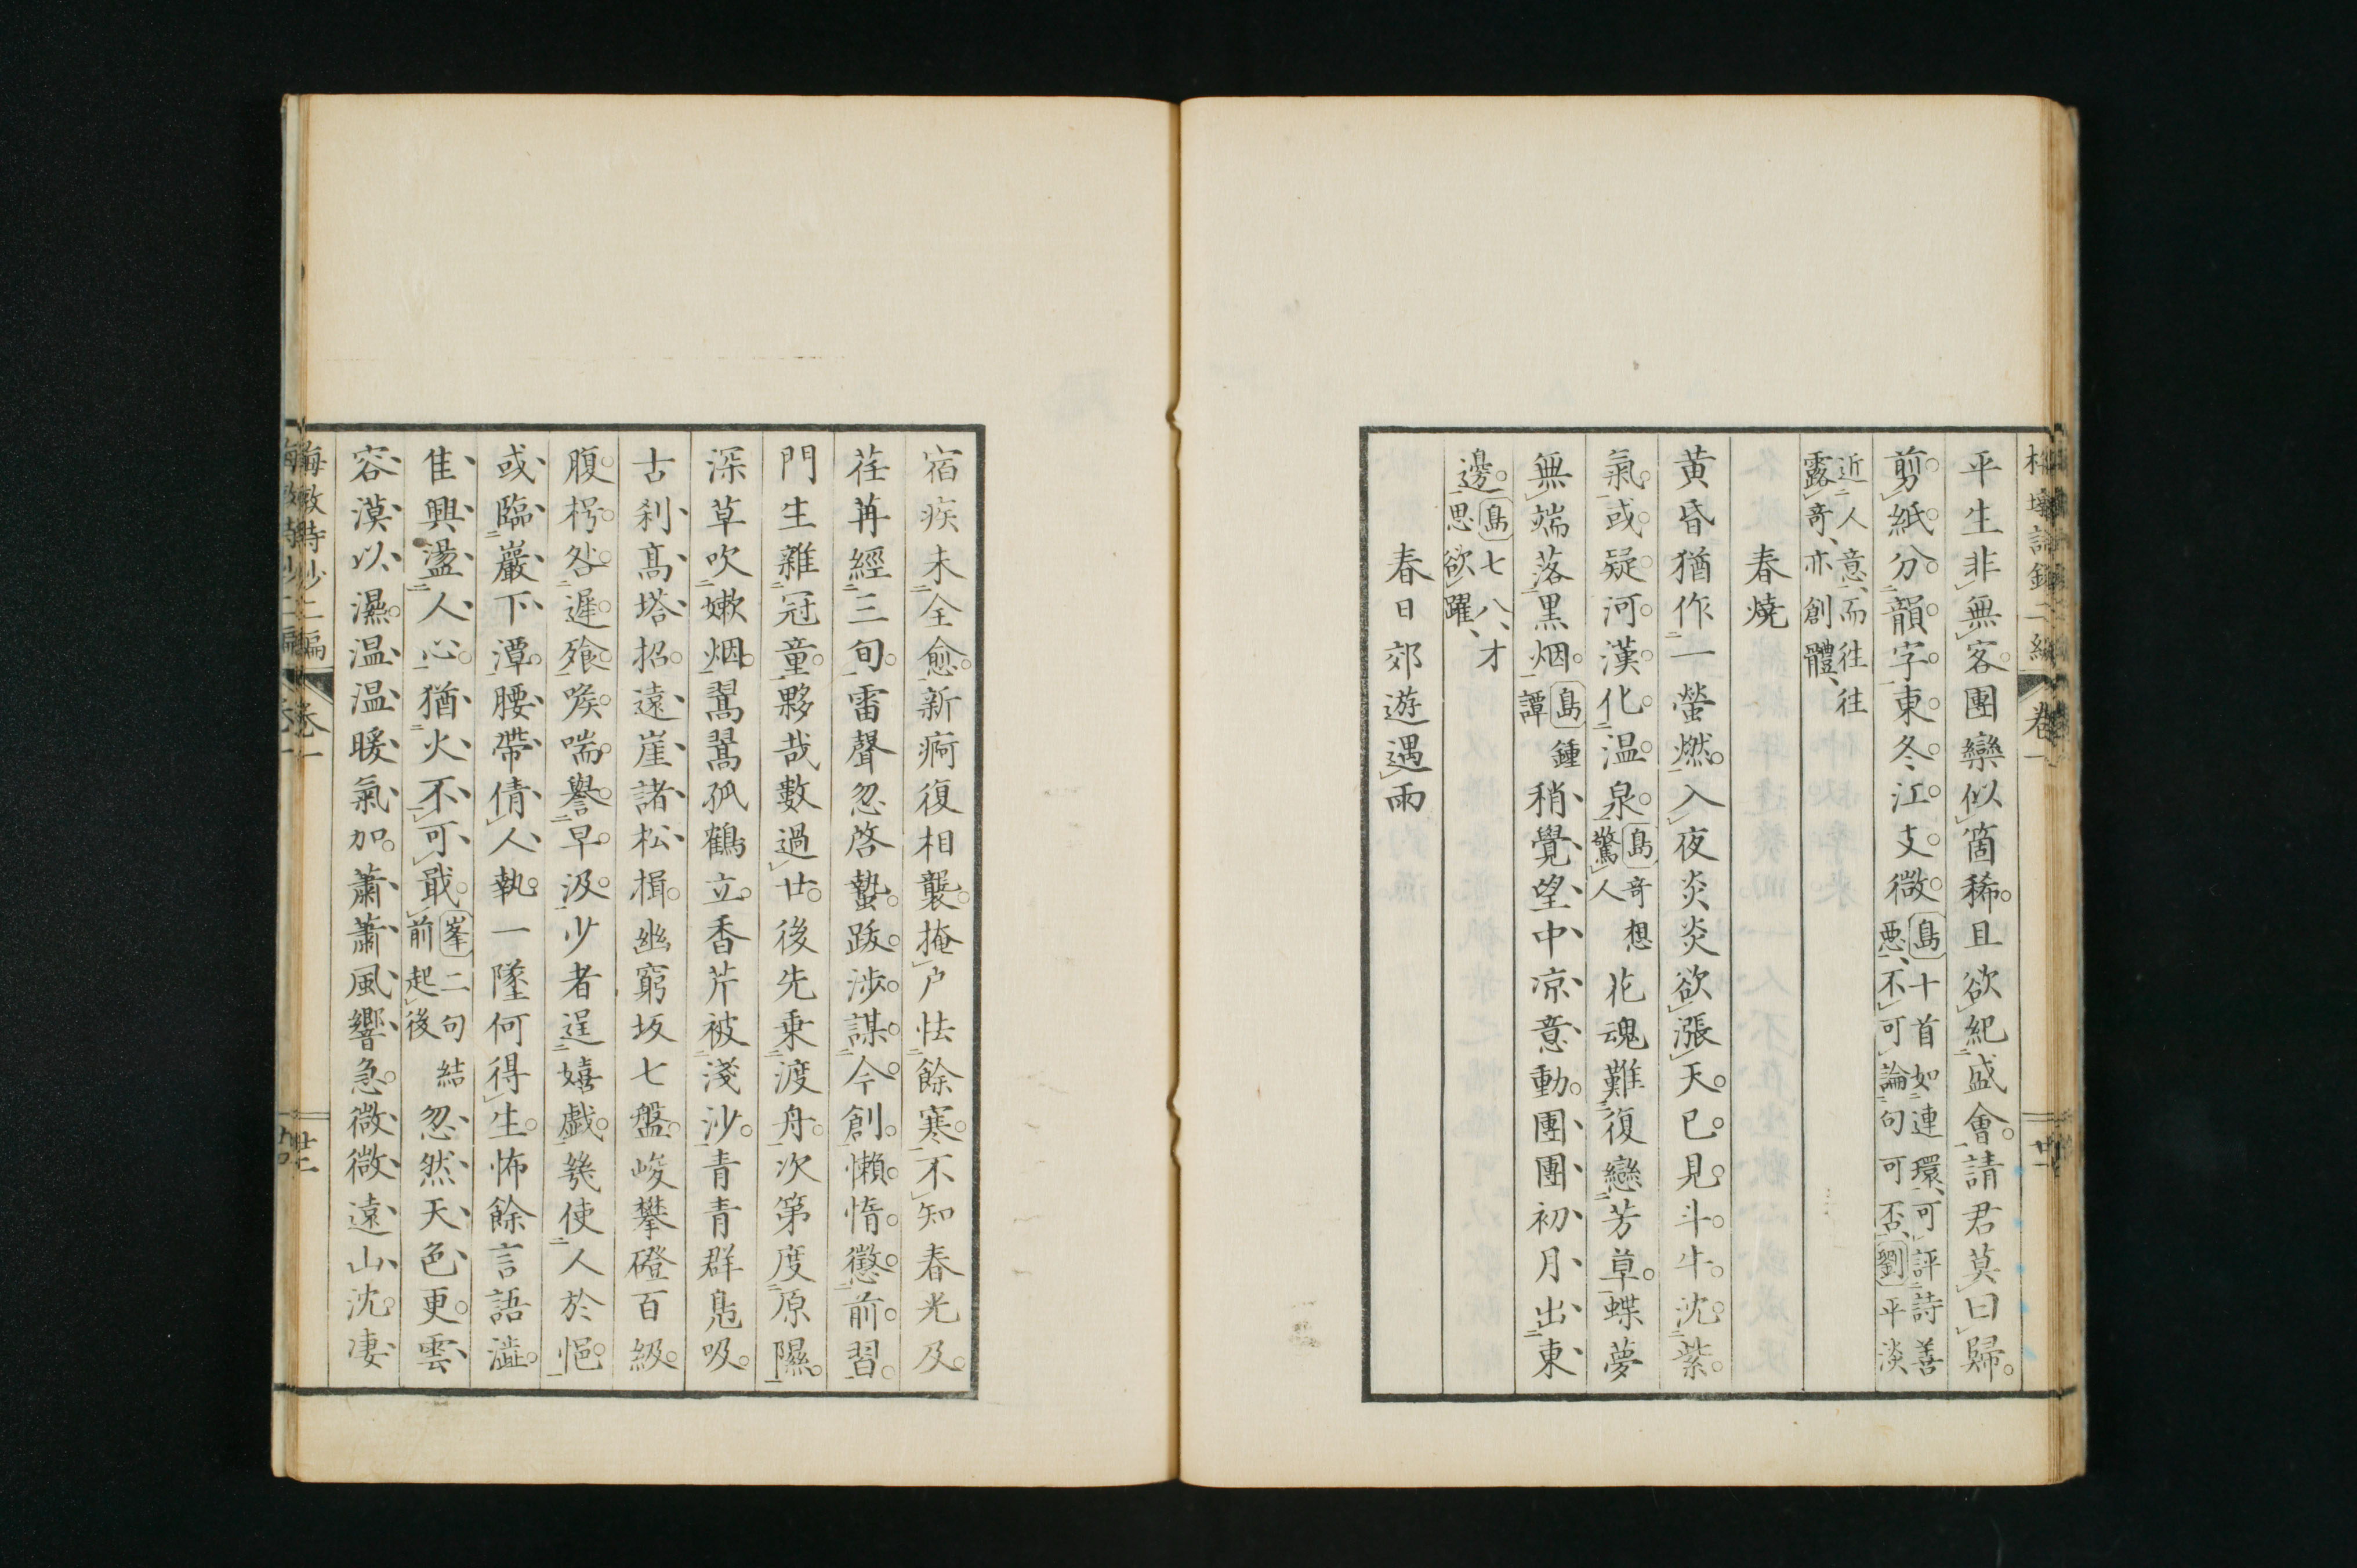 平生非無客團欒似箇稀且欲紀盛會請君莫曰歸
剪紙分韻字東冬江支微島十首如連環可評詩善
惡不可論句可否劉平淡
近人意而往往
露奇亦創體
春燒
黄昏猶作一螢燃入夜炎炎欲漲天已見斗牛沈紫
氣或疑河漢化温泉島奇想
驚人花魂難復戀芳草蝶夢
無端落黒烟島鍾
譚稍覺望中凉意動團團初月出東
邊島七八才
思欲躍
春日郊遊遇雨
宿疾未全愈新痾復相襲掩戸怯餘寒不知春光及
荏苒經三旬雷聲忽啓蟄跋渉謀今創懶惰懲前習
門生雜冠童夥哉數過廿後先乗渡舟次第度原隰
深草吹嫩烟翯翯孤鶴立香芹被淺沙青青群鳧吸
古刹髙塔招遠崖諸松揖幽窮坂七盤峻攀磴百級
腹枵咎遲飱喉喘譽早汲少者逞嬉戯幾使人於悒
或臨巖下潭腰帶倩人執一墜何得生怖餘言語澁
隹興盪人心猶火不可戢峯二句結
前起後忽然天色更雲
容漠以濕温温暖氣加蕭蕭風響急微微遠山沈凄
梅墩詩鈔二編 卷一